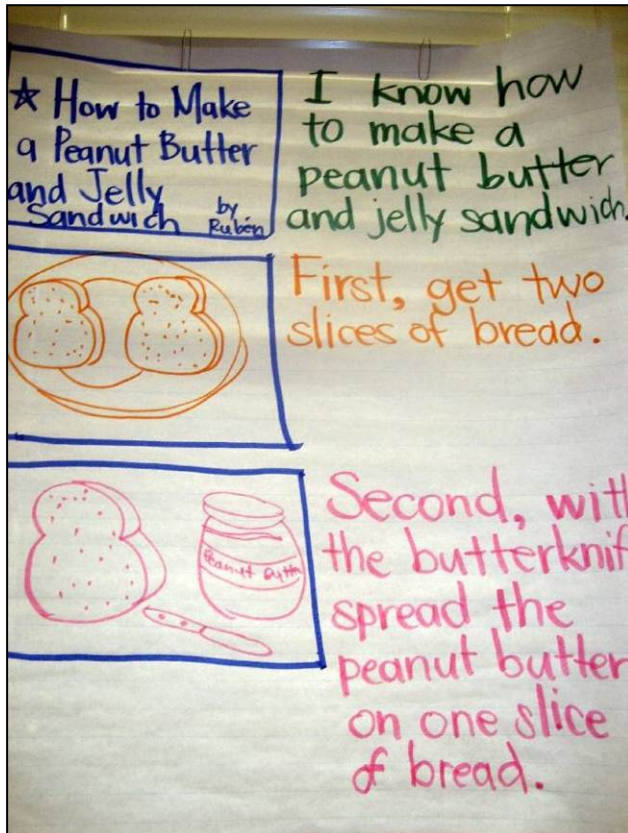 ★ How to Make
a Peanut Butter
and Jelly
Sandwich
by
Rubén
I know how
to make a
peanut butter
and jelly sandwich.
First, get two
slices of bread.
Peanut Butte
Second, with
the butterknif
spread the
peanut butter
on one slice
of bread.